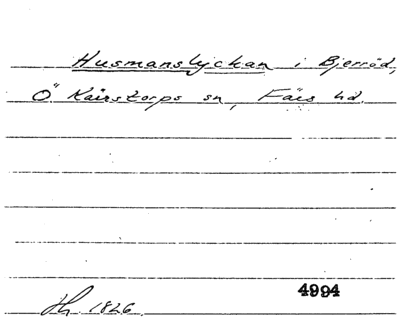 Husmanslyckan i Bjerröd,
Ö Kärrstorps sn, Färs hd.
4994
Hh. 1826.